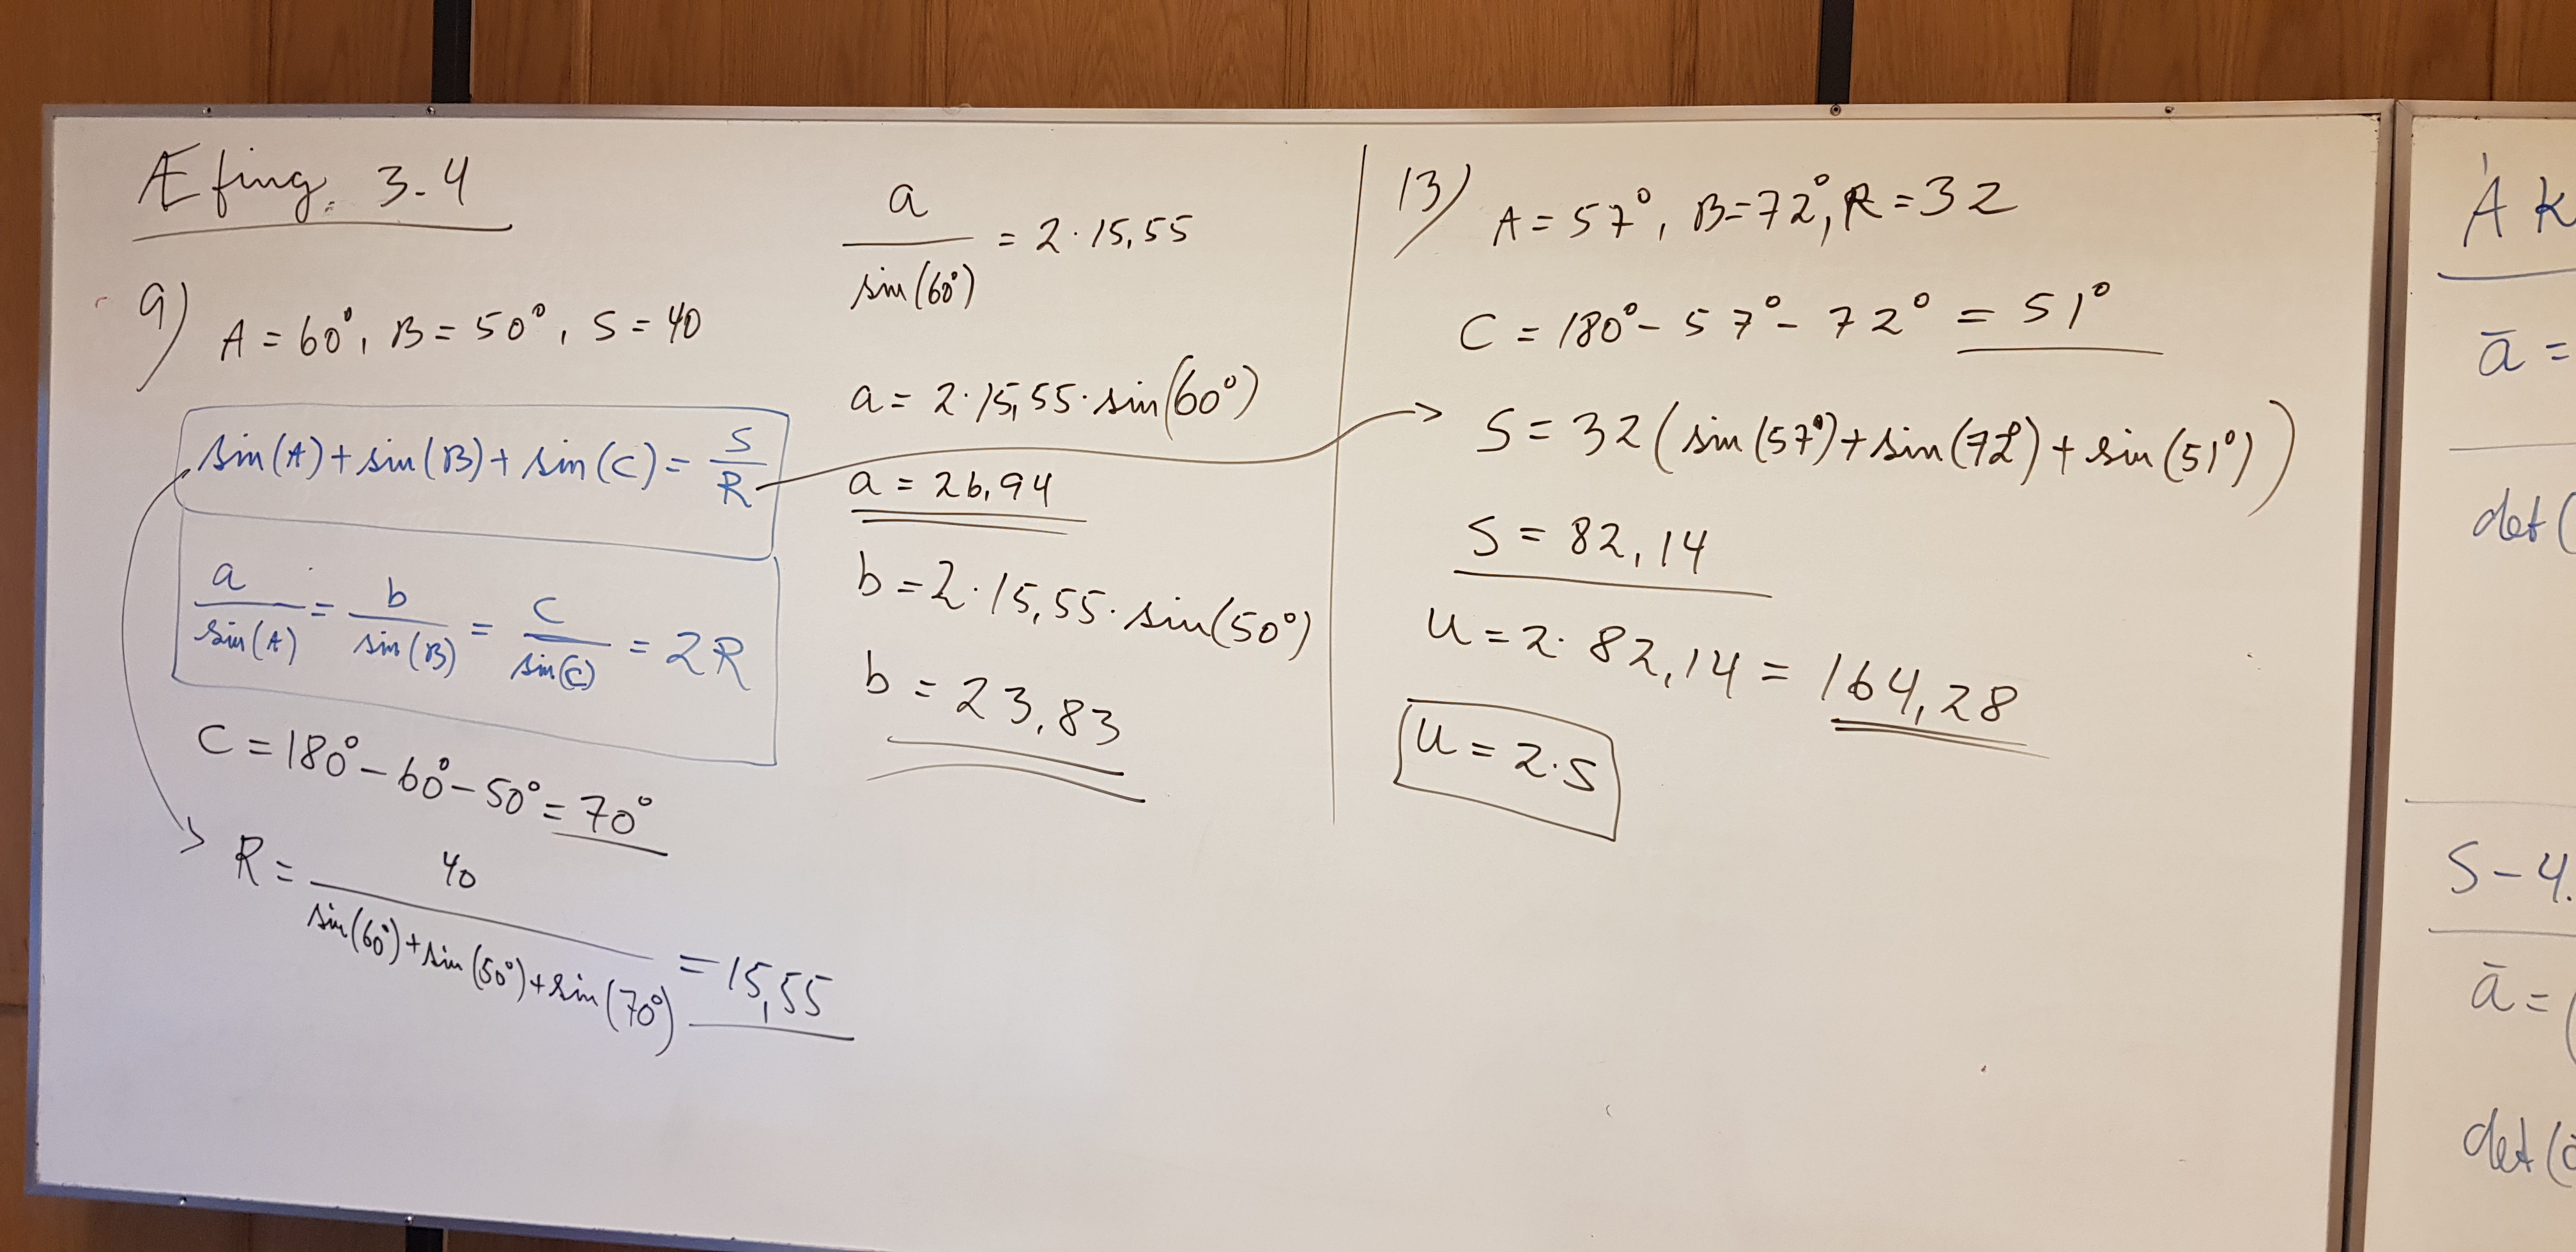 Æfing. 3.4
9) A = 60°, B = 50°, S = 40
sin(A) + sin(B) + sin(C) = S/R
a/sin(A) = b/sin(B) = c/sin(C) = 2R
C = 180° - 60° - 50° = 70°
R = 40/(sin(60°) + sin(50°) + sin(70°)) = 15,55
a/sin(60°) = 2·15,55
a = 2·15,55·sin(60°)
a = 26,94
b = 2·15,55·sin(50°)
b = 23,83
13) A = 57°, B = 72°, R = 32
C = 180° - 57° - 72° = 51°
S = 32(sin(57°) + sin(72°) + sin(51°))
S = 82,14
U = 2·82,14 = 164,28
U = 2·S
ā =
det(
S-4.
ā = (
det(